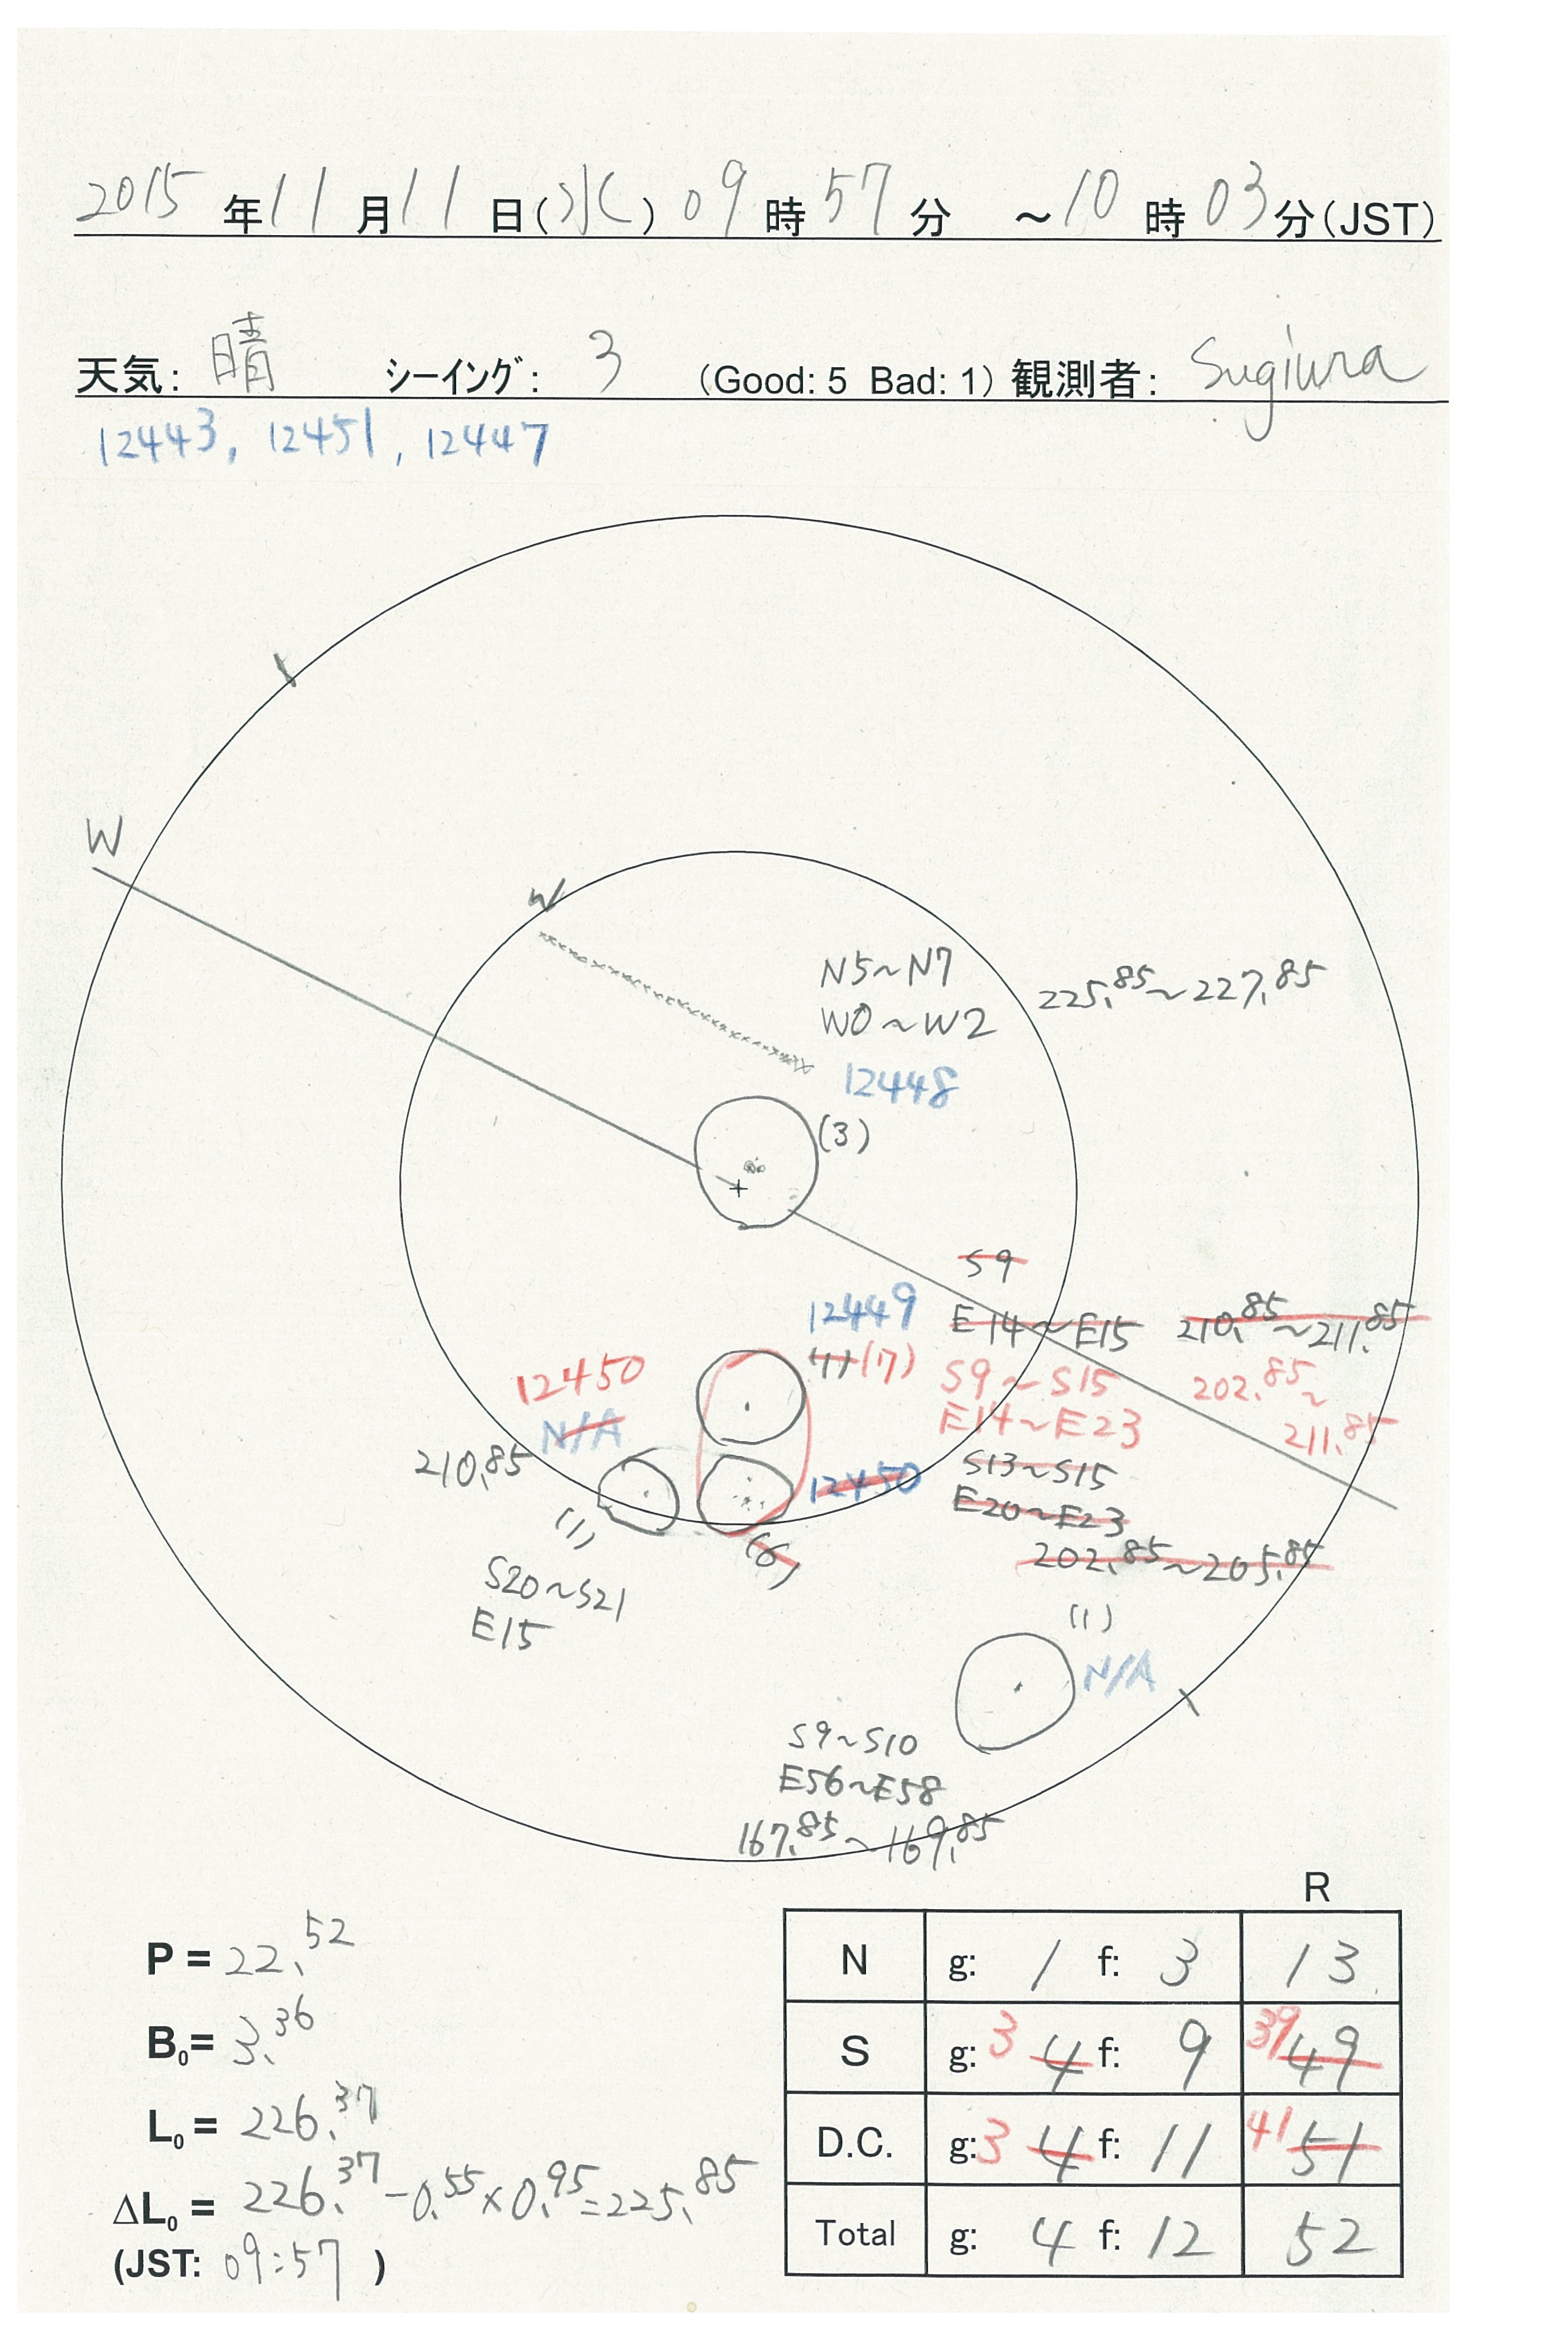 2015年11月11日(水) 09時57分 ～10時03分(JST)
天気: 晴 シーイング: 3 (Good: 5 Bad: 1) 観測者: Sugiura
12443, 12451, 12447
W
W
N5～N7
W0～W2
225.85～227.85
12448
(3)
S9
E14～E15 210.85～211.85
12449
(1) (7)
S9～S15
E14～E23
202.85～
211.85
12450
N/A
210.85
(1)
S20～S21
E15
12450
S13～S15
E20～E23
202.85～205.85
(6)
(1)
N/A
S9～S10
E56～E58
167.85～169.85
P = 22.52
B0= 3.36
L0 = 226.37
ΔL0 = 226.37-0.55×0.95=225.85
(JST: 09:57 )
R
N g: 1 f: 3 13
S g: 3 4 f: 9 39 49
D.C. g: 3 4 f: 11 41 51
Total g: 4 f: 12 52